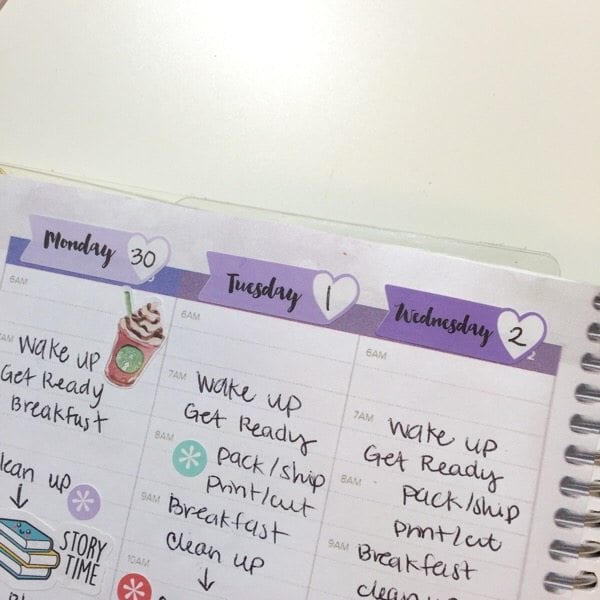 Monday 30
6AM
7AM
Wake up
Get Ready
Breakfast
clean up
STORY
TIME
Tuesday 1
6AM
7AM
Wake up
Get Ready
8AM
pack/ship
Print/cut
9AM
Breakfast
clean up
10AM
Wednesday 2
2
6AM
7AM
Wake up
Get Ready
8AM
pack/ship
print/cut
9AM
Breakfast
clean up